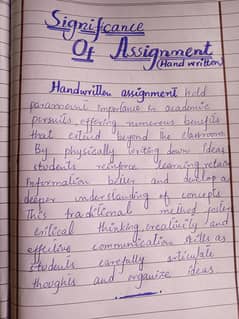 Significance
Of Assignment
(Hand written)
Handwritten assignment hold
paramount importance in academic
pursuits, offering numerous benefits
that extend beyond the classroom
By physically writing down ideas
students reinforce learning, retain
Information better and develop a
deeper understanding of concepts
This traditional method foster
critical thinking, creativity and
effective communication skills as
students carefully articulate
thoughts and organize ideas